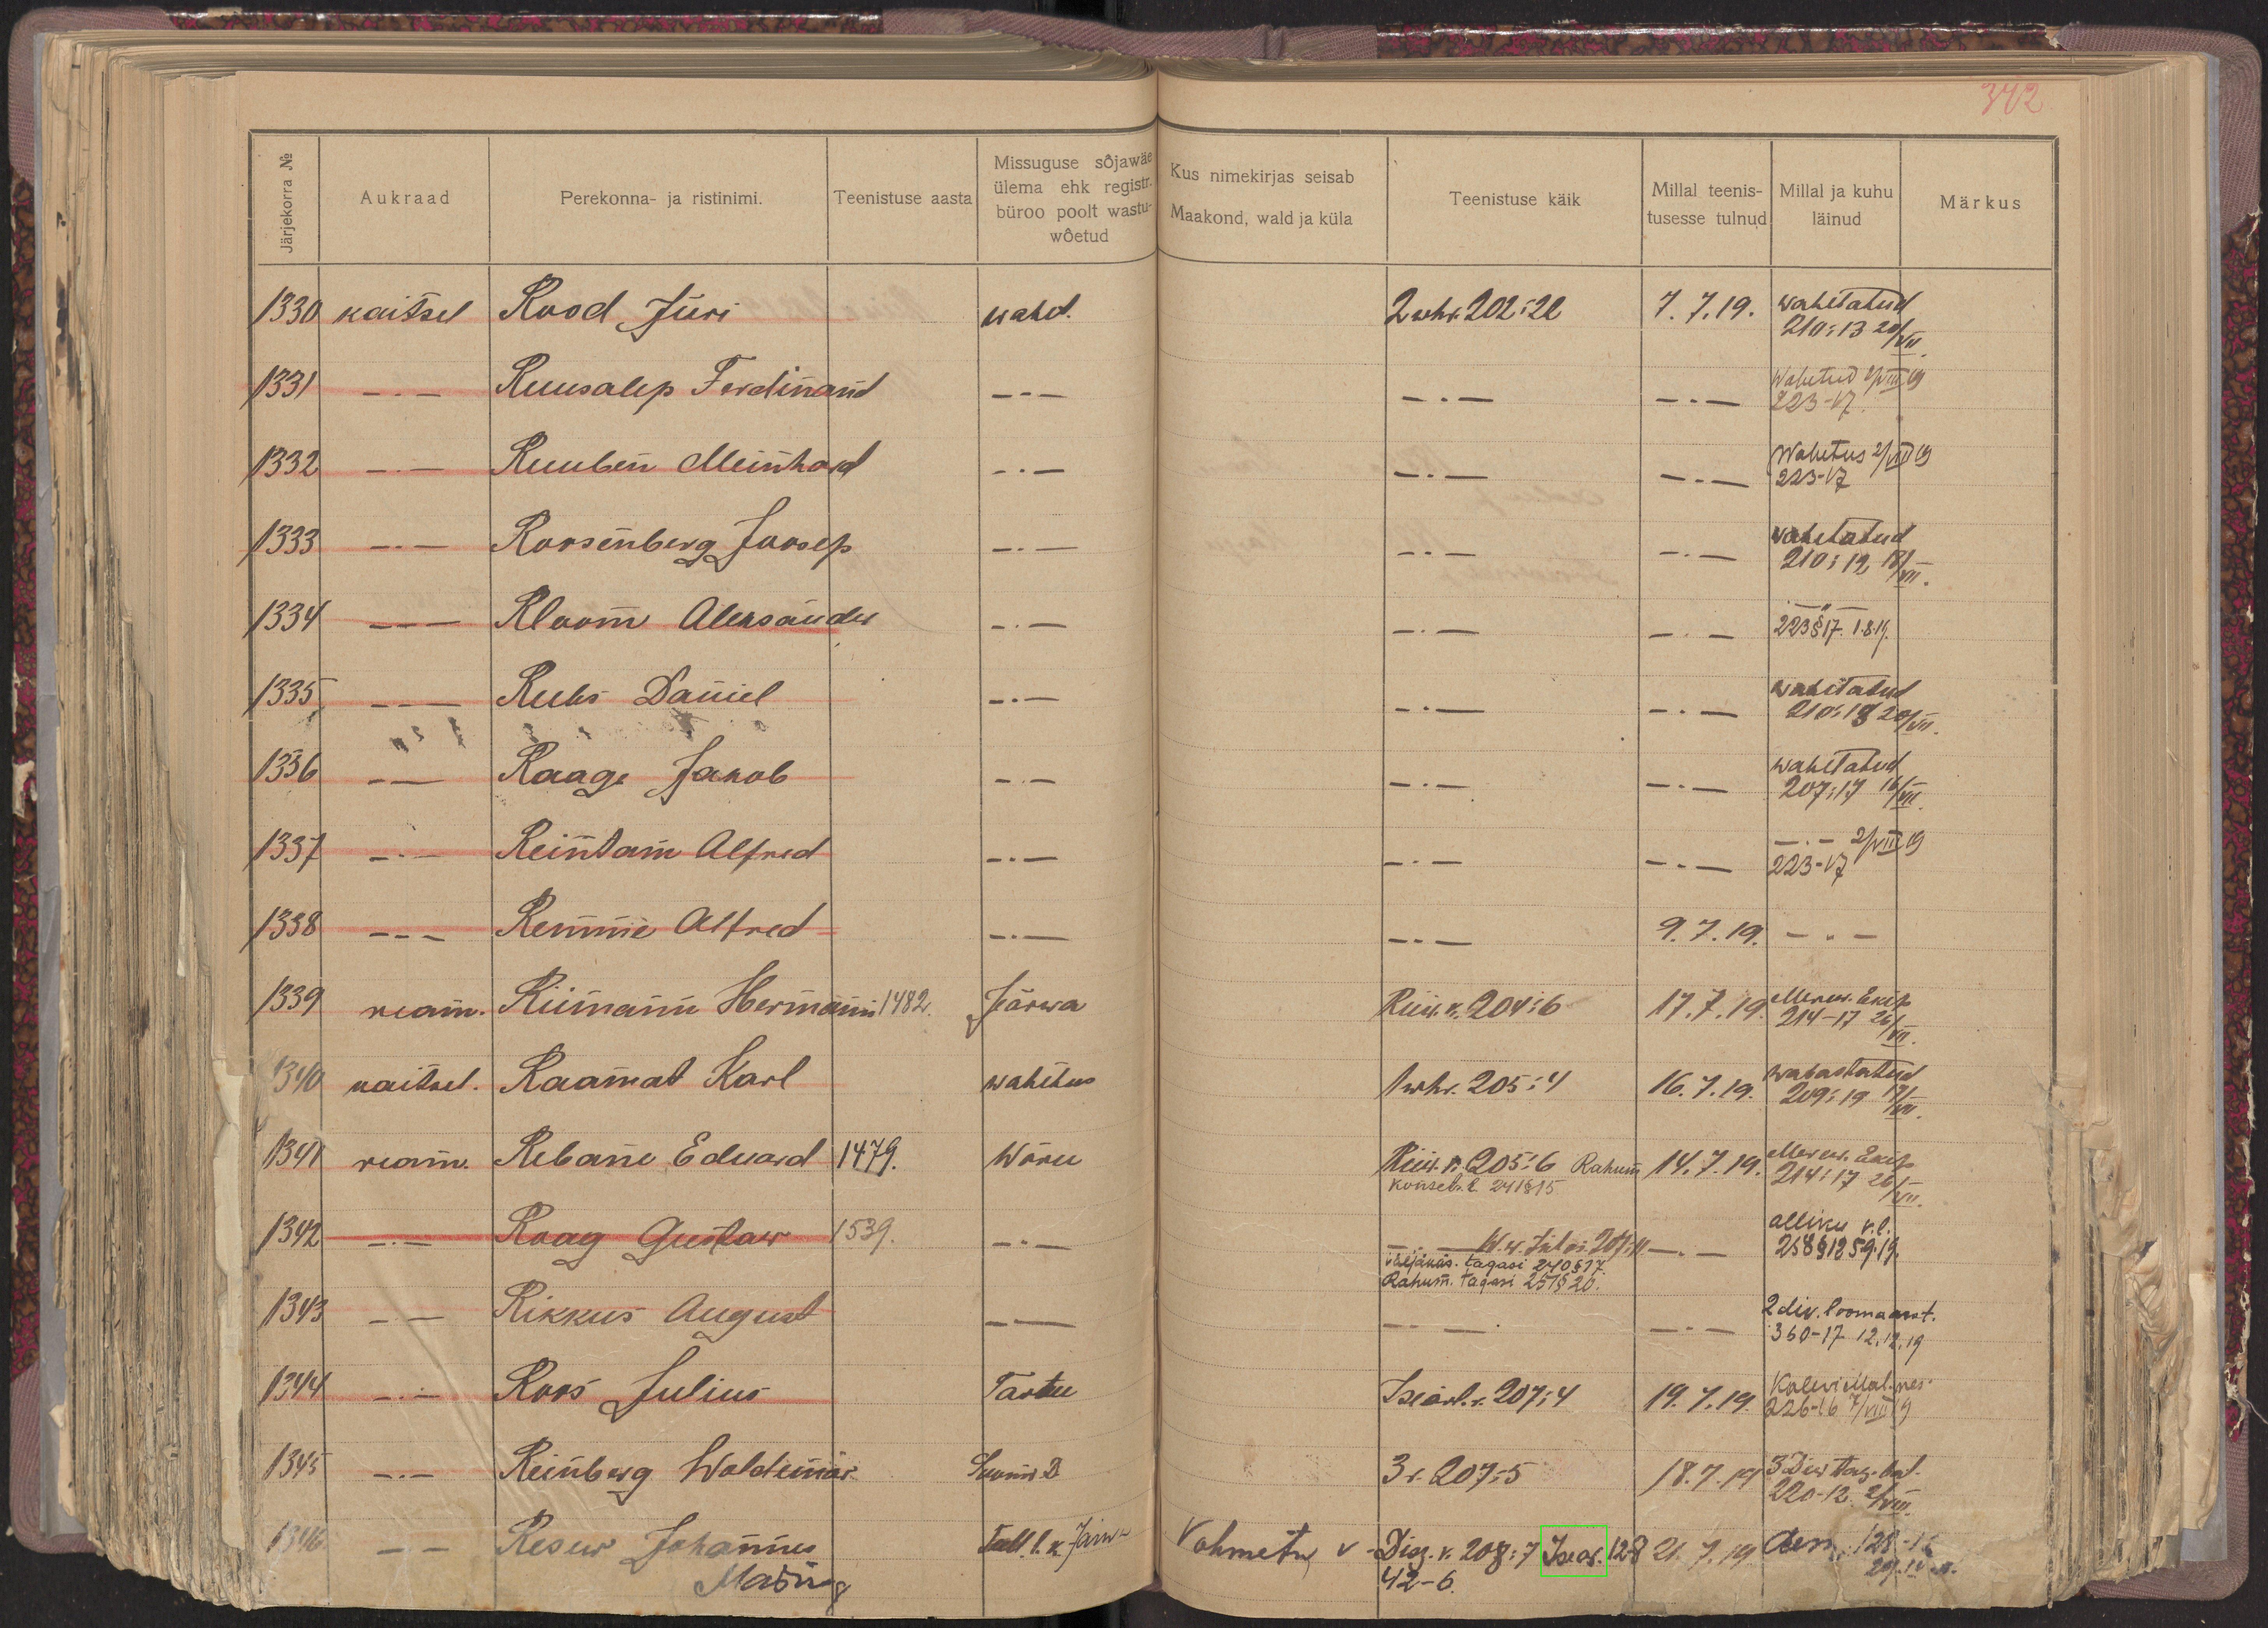 342
Järjekorra № Aukraad Perekonna- ja ristinimi. Teenistuse aasta Missuguse sõjawäe ülema ehk registr. büroo poolt wastu- wõetud Kus nimekirjas seisab Maakond, wald ja küla Teenistuse käik Millal teenis- tusesse tulnud Millal ja kuhu läinud Märkus
1330 kaitsel Rood Jüri wahet. 2 whr. 202:22 7.7.19. wahetatud
210:13 20/VII.
1331 -.- Ruusalep Ferdinand -.- -.- -.- Wahetud 2/VIII 19
223-17.
1332 -.- Ruuben Meinhard -.- -.- -.- Wahetus 2/VIII 19
223-17
1333 -.- Roosenberg Joosep -.- -.- -.- wahetatud
210:12 18/VII.
1334 --- Kloom Aleksander -.- -.- -.- -"-
223 § 17. 1.8.19.
1335 --- Rubs Daniel -.- -.- -.- wahetatud
210:18 20/VII.
1336 -- Raage Jakob -.- -.- -.- wahetatud
207:17 16/VII.
1337 -.- Reintam Alfred -.- -.- -.- -.- 2/VIII 19
223-17
1338 --- Remme Alfred -.- -.- 9.7.19. -.-
1339 ream. Riimann Hermann 1482. Järwa Rüü. r. 204:6 17.7.19. Merew. Ekip
214-17 26/VII.
1340 kaitsel. Raamat Karl wahetus 1 whr. 205:4 16.7.19. wabastatud
209:19 19/VII.
1341 ream. Rebane Eduard 1479. Wõru Rüü. r. 205:6 Rahum 14.7.19. Merew. Ekip
214:17 26/VII.
241§15
1342 -.- Roag Gustaw 1539. -.- -.- -.- alliku v.l.
258 § 12 5.9.19.
tagasi 240 § 17
Rahum. tagasi 257 § 20.
1343 -- Rikkus August -.- -.- -.- 2 div. loomaarst.
360-17 12.12.19
1344 -.- Roos Julius Tartu Iseärl. r. 207:4 19.7.19. Kalevi Mal.
226-16 7/VIII 19
1345 -.- Reinberg Woldemar 3 r. 207:5 18.7.19 3 Diw tag. bat.
220-12. 2/VIII
1346 -- Resew Johannes Tall. l. k. Järw- Vohmetu v- 208:7 Isear. 128 21.7.19 dem. 128-
Masing 42-6.